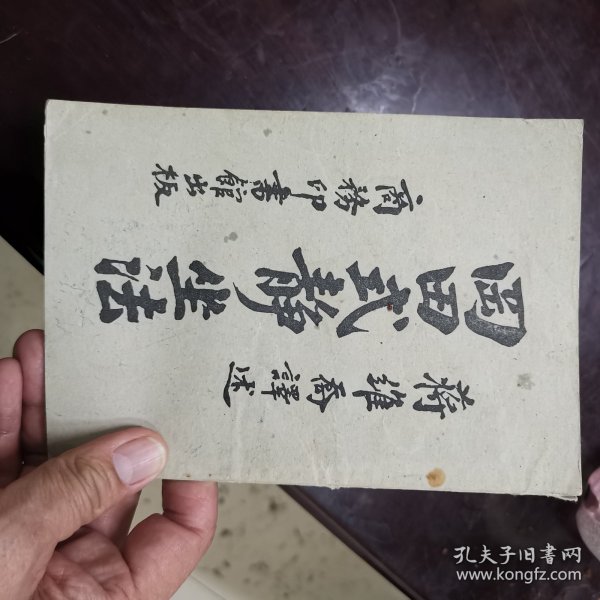 蔣維喬譯述
岡田式靜坐法
商務印書館出板
孔夫子旧书网
www.kongfz.com